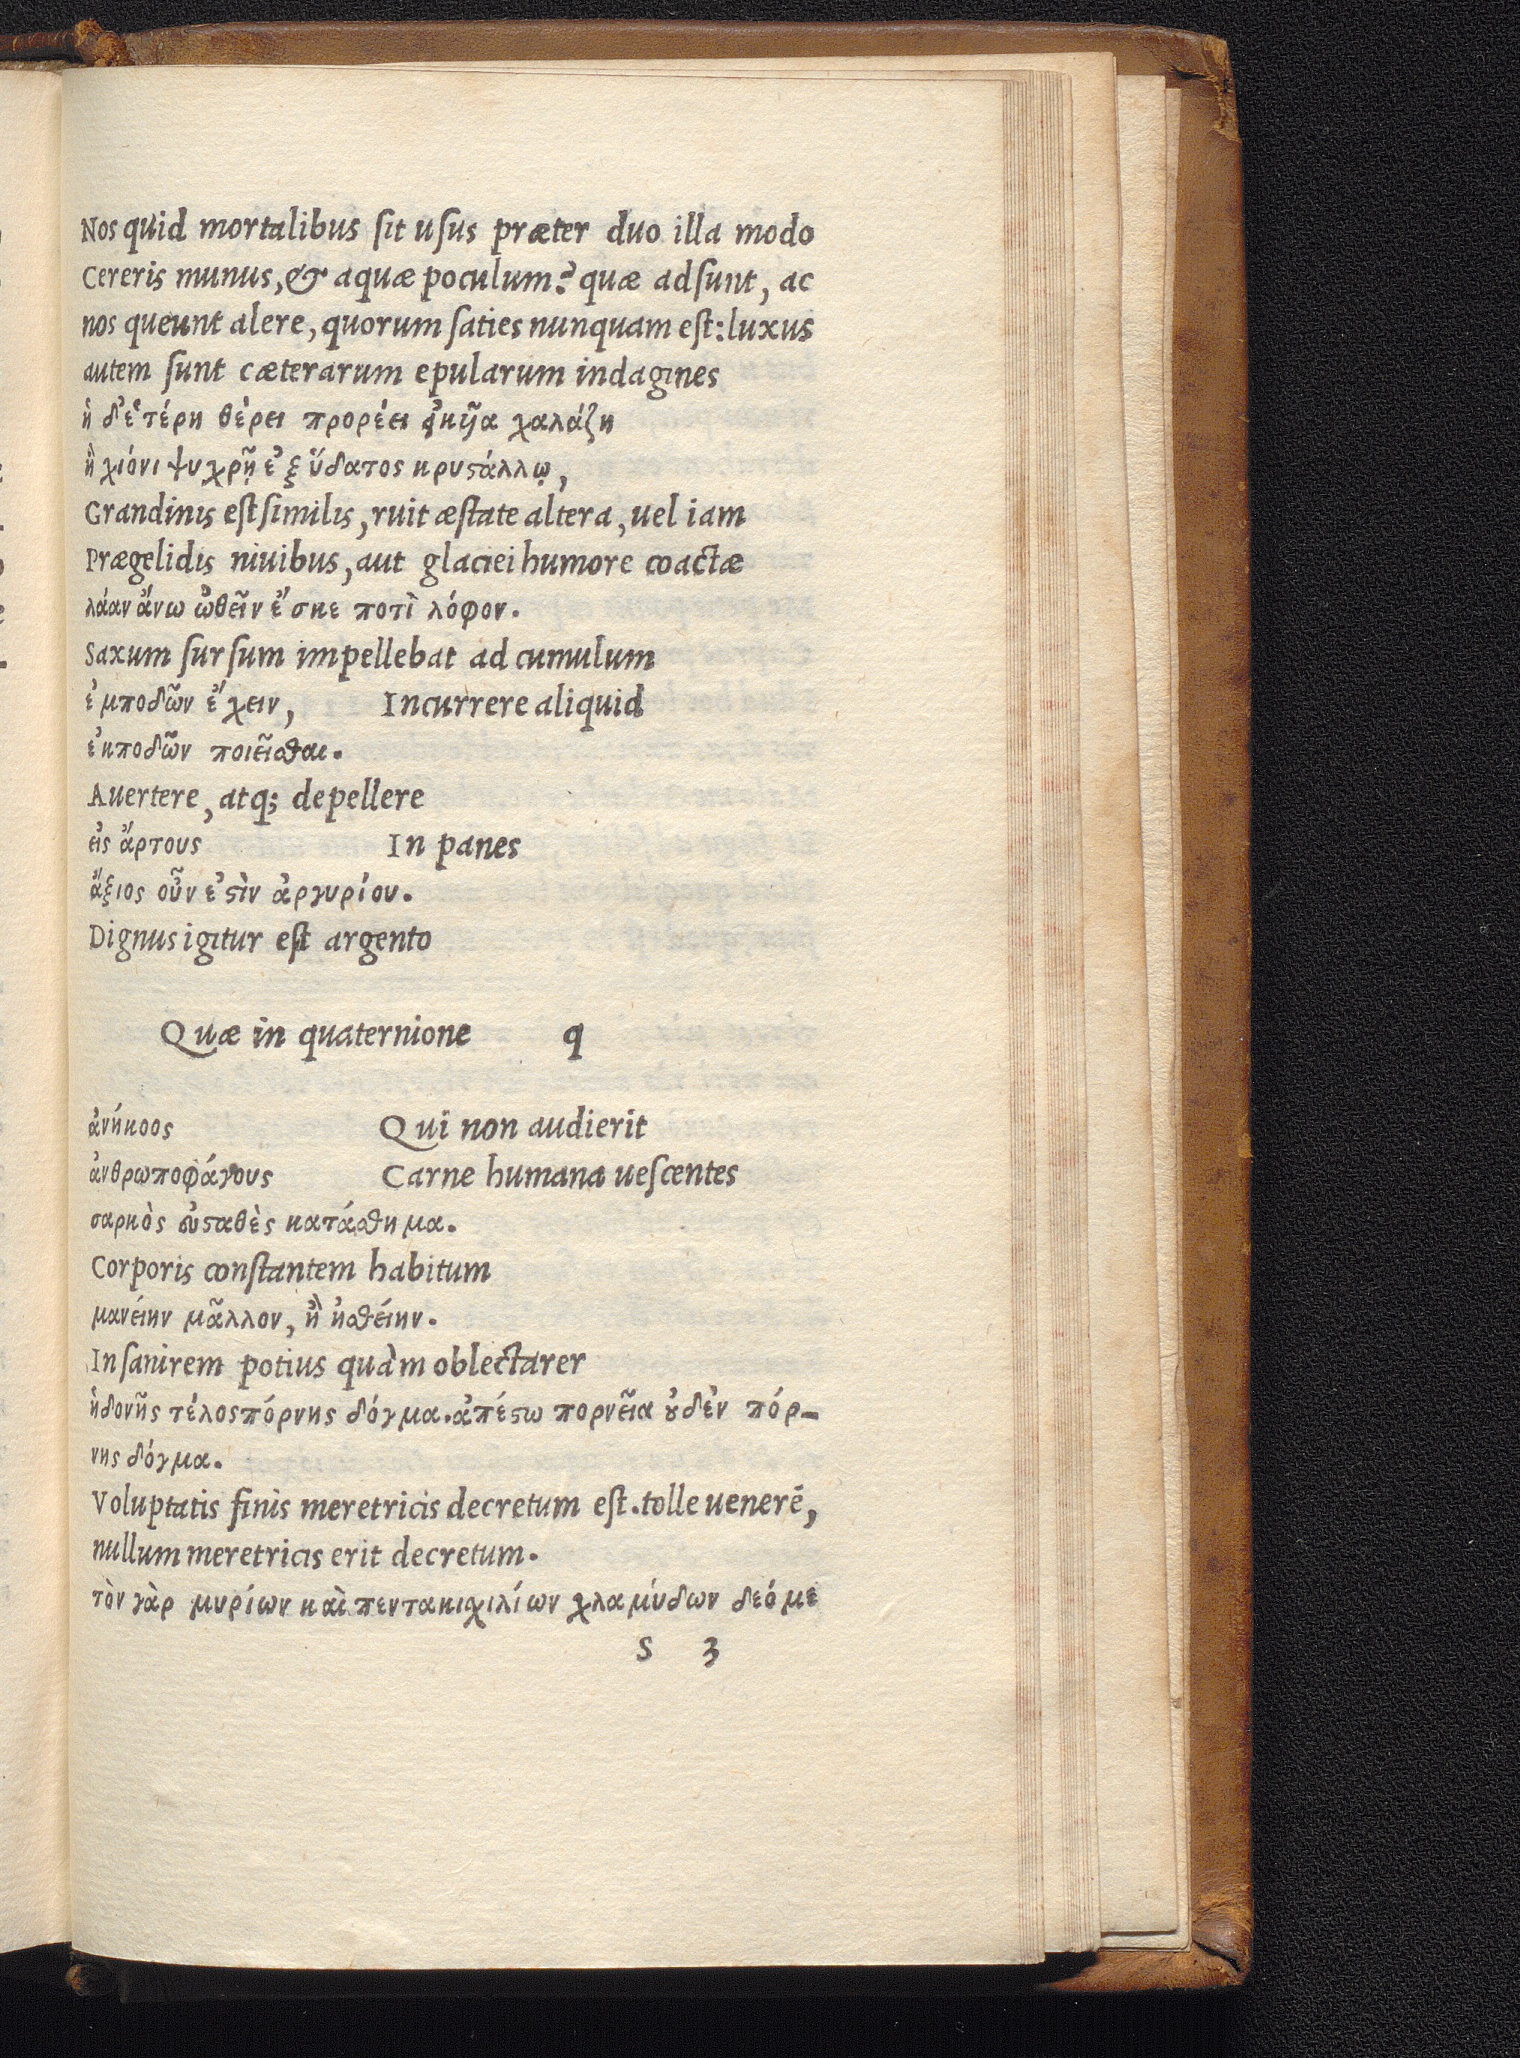 Nos quid mortalibus ſit uſus præter duo illa modo
Cereris munus, & aquæ poculum? quæ adſunt, ac
nos queunt alere, quorum ſaties nunquam eſt: luxus
autem ſunt cæterarum epularum indagines
ἡ δ᾽ ἑτέρη θέρει προρέει εἰκυῖα χαλάζῃ
ἢ χιόνι ψυχρῇ ἐξ ὕδατος κρυϛάλλῳ,
Grandinis eſt ſimilis, ruit æſtate altera, uel iam
Prægelidis niuibus, aut glaciei humore coactæ
λάαν ἄνω ὤθεῖν ἔσκε ποτὶ λόφον.
Saxum ſurſum impellebat ad cumulum
ἐμποδῶν ἔχειν, Incurrere aliquid
ἐκποδῶν ποιεῖσθαι.
Auertere, atq; depellere
εἰς ἄρτους In panes
ἄξιος οὖν ἐϛὶν ἀργυρίου.
Dignus igitur eſt argento
Quæ in quaternione q
ἀνήκοος Qui non audierit
ἀνθρωποφάγους Carne humana ueſcentes
σαρκὸς εὐϛαθὲς κατάσθημα.
Corporis conſtantem habitum
μανείην μᾶλλον, ἢ ἡσθείην.
Inſanirem potius quàm oblectarer
ἡδονῆς τέλος πόρνης δόγμα. ἀπέϛω πορνεία οὐδὲν πόρ-
νης δόγμα.
Voluptatis finis meretricis decretum eſt. tolle uenerē,
nullum meretricis erit decretum.
τὸν γὰρ μυρίων καὶ πεντακιχιλίων χλαμύδων δεόμε
S 3